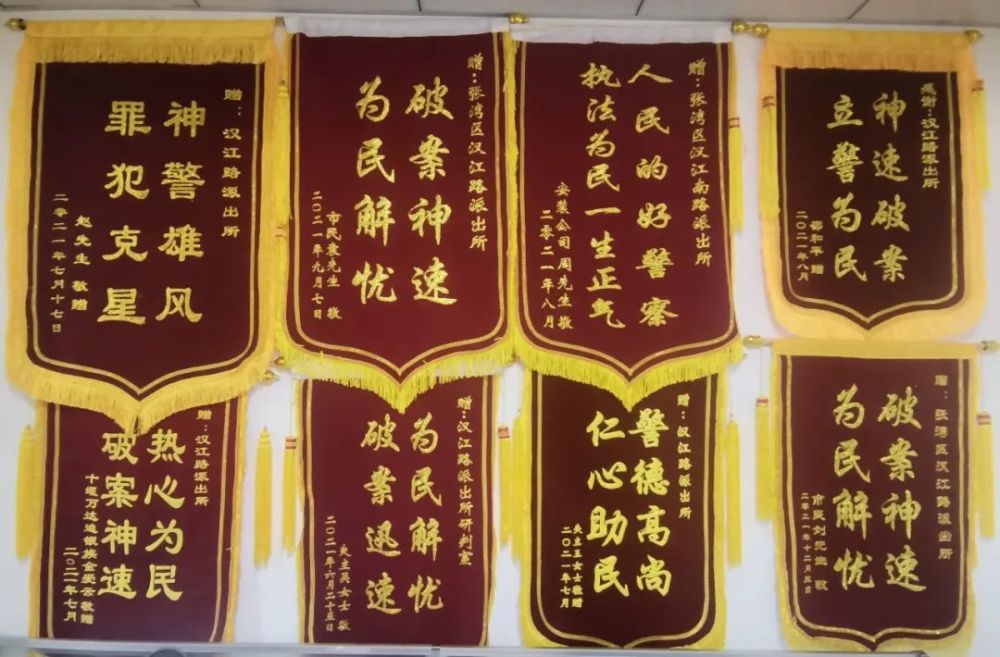 赠：汉江路派出所
神警雄风
罪犯克星
赵先生 敬赠
二零二一年七月十七日
赠：张湾区汉江路派出所
破案神速
为民解忧
市民袁先生 敬
二〇二一年九月七日
赠：张湾区汉江南路派出所
人民的好警察
执法为民一生正气
安装公司周先生敬
二零二一年八月
感谢：汉江路派出所
神速破案
立警为民
邵和平 赠
二〇二一年八月
赠：汉江路派出所
热心为民
破案神速
十堰万达迪银族金爱云敬赠
二〇二一年七月
赠：汉江路派出所研判室
为民解忧
破案迅速
失主吴女士 敬
二〇二一年六月二十五日
赠：汉江路派出所
警德高尚
仁心助民
失主王女士敬赠
二〇二一年七月
赠：张湾区汉江路派出所
破案神速
为民解忧
市民刘先生 敬
二零二一年十二月三日